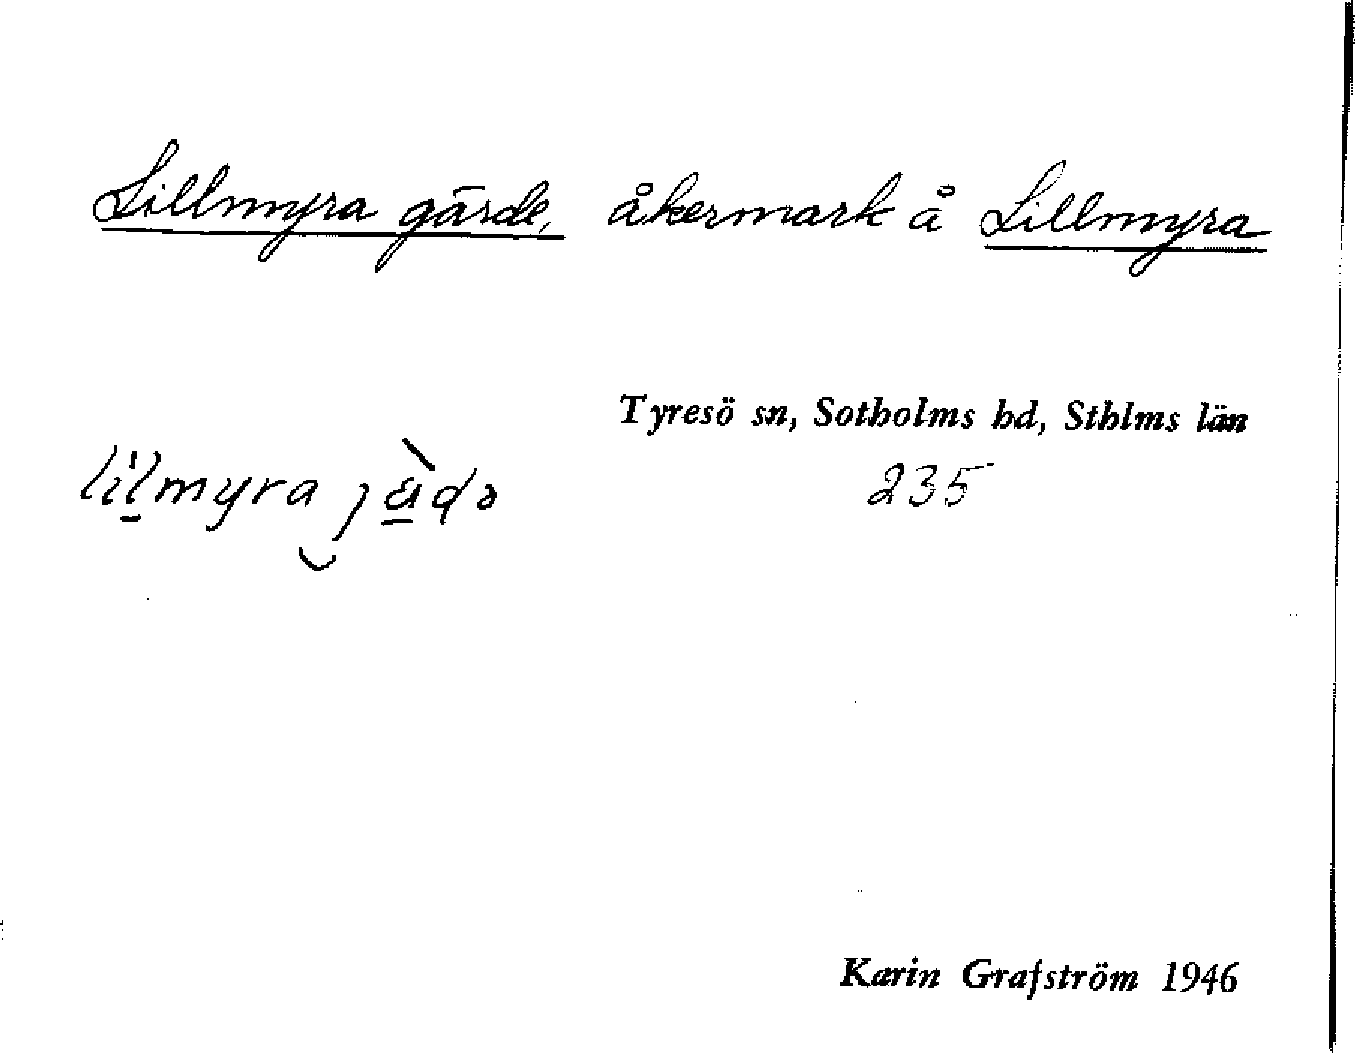 Lillmyra gärde, åkermark å Lillmyra
Tyresö sn, Sotholms hd, Sthlms län
235
Karin Grafström 1946